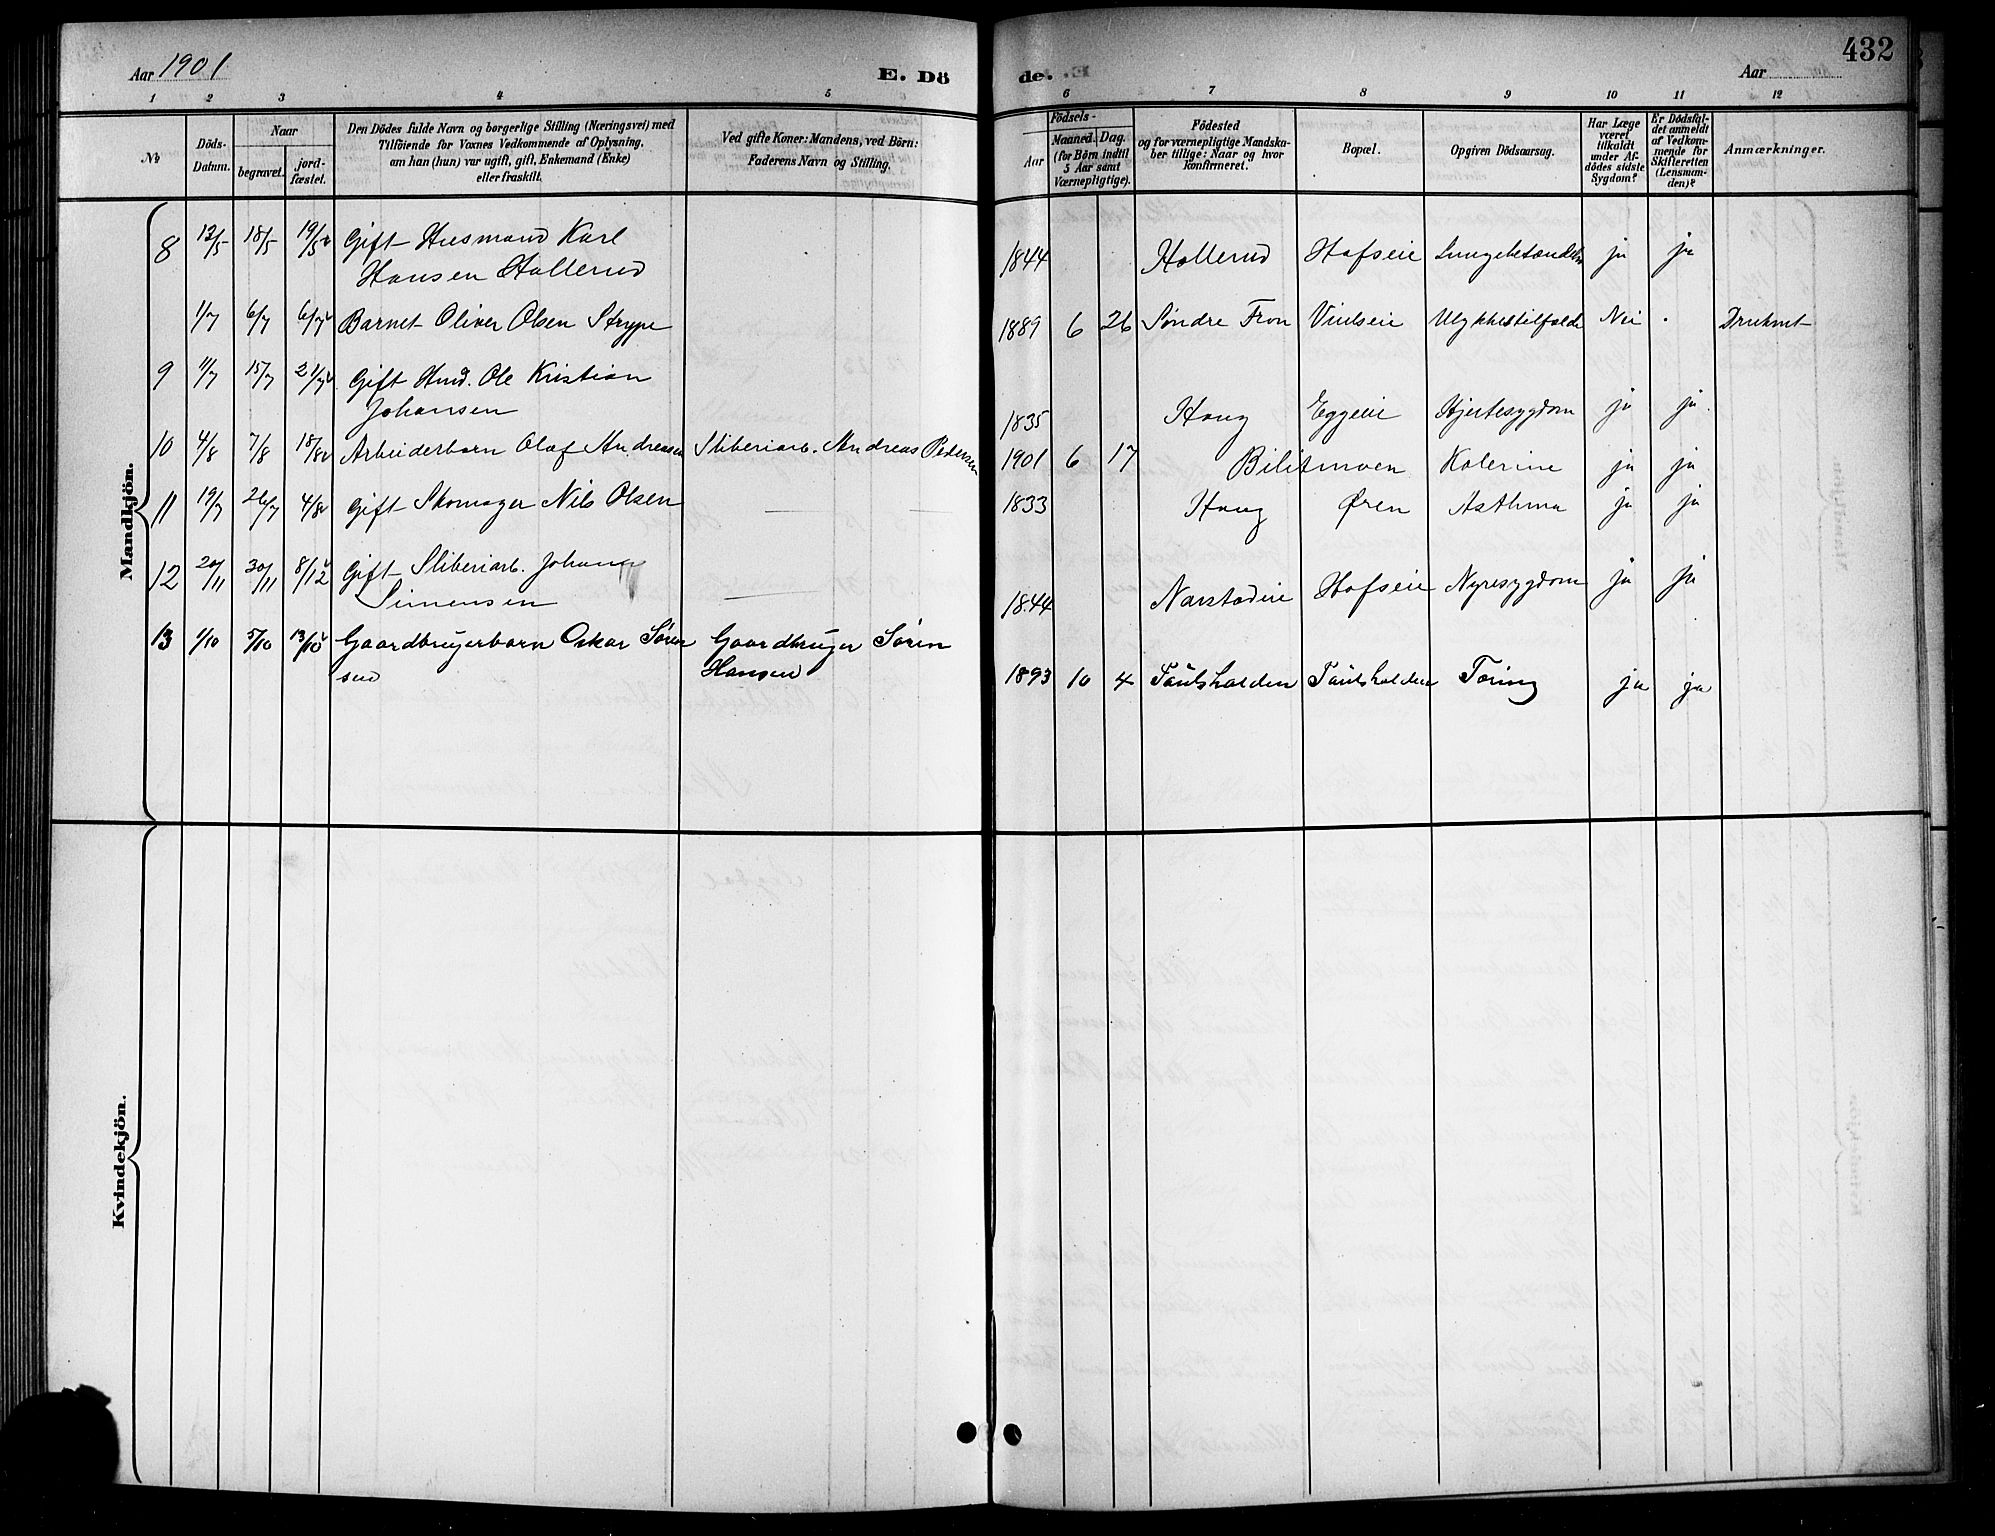 Aar 1901
E. Dö
de.
Aar
432
1 2 3 4 5 6 7 8 9 10 11 12
No
Döds-Datum.
Naar
begravet.
jord-fæstet.
Den Dödes fulde Navn og borgerlige Stilling (Næringsvei) med
Tilföiende for Voxnes Vedkommende af Oplysning,
om han (hun) var ugift, gift, Enkemand (Enke)
eller fraskilt.
Ved gifte Koner: Mandens, ved Börn:
Faderens Navn og Stilling.
Födsels-
Aar
Maaned. Dag.
(for Börn indtil
5 Aar samt
Værnepligtige).
Födested
og for værnepligtige Mandska-
ber tillige: Naar og hvor
konfirmeret.
Bopæl.
Opgiven Dödsaarsag.
Har Læge
været
tilkaldt
under Af-
dödes sidste
Sygdom?
Er Dödsfal-
det anmeldt
af Vedkom-
mende for
Skifteretten
(Lensman-
den)?
Anmærkninger.
Mandkjön.
8 13/5 18/5 19/5 Gift Husmand Karl
Hansen Hollerud
1844 Hollerud Hofseie Lungebetændelse ja ja
1/7 6/7 6/7 Barnet Oliver Olsen Strype
1889 6 26 Søndre Fron Ulykkestilfælde Nei Druknet
9 11/7 15/7 21/7 Gift Hmd. Ole Kristian
Johansen
1835 Haug Eggeeie Hjertesygdom ja ja
10 4/8 7/8 18/8 Arbeiderbarn Olaf Andreasen Sliberiarb. Andreas Pedersen
1901 6 17 Bilitmoen Kolerine ja ja
11 19/7 26/7 4/8 Gift Skomager Nils Olsen
1833 Haug Øren Asthma ja ja
12 20/11 30/11 8/12 Gift Sliberiarb. Johan
Simensen
1844 Hofseie Nyresygdom ja ja
13 1/10 5/10 13/10 Gaardbrugerbarn Oskar Sören
sen
Gaardbruger Sören
Hansen
1893 10 4 Tæring ja ja
Kvindekjön.